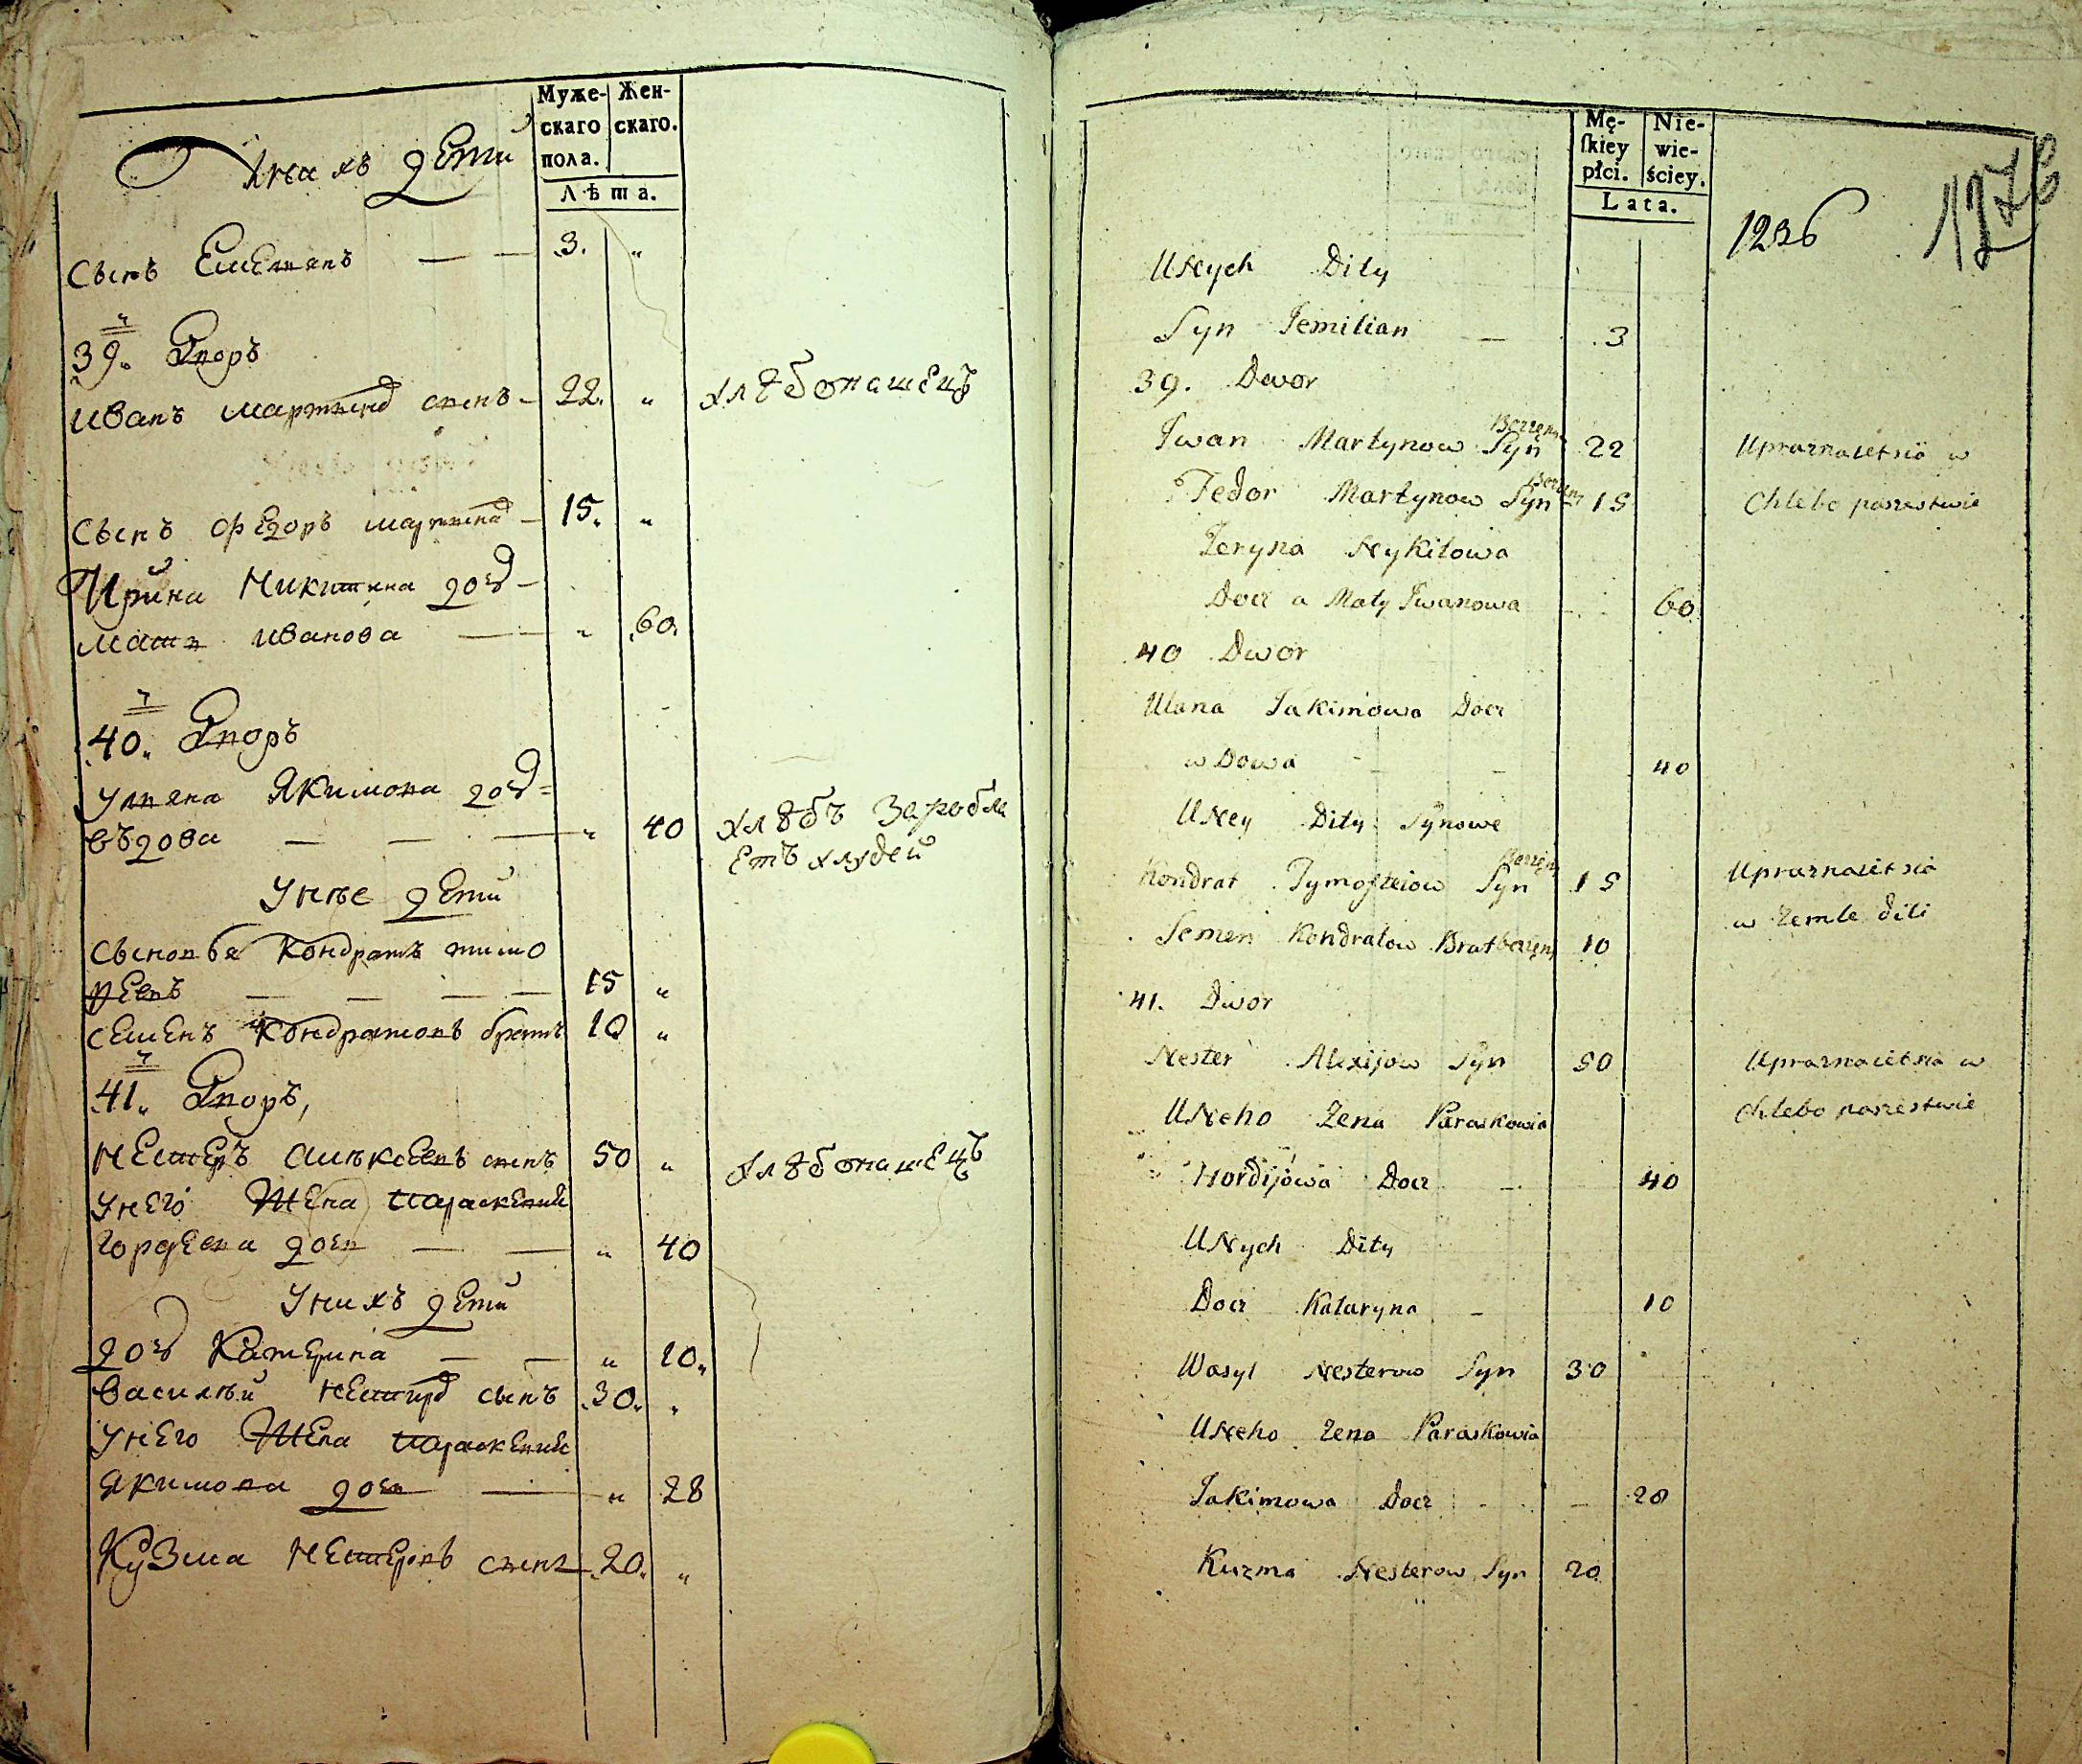 Муже-
скаго
пола.
Жен-
скаго.
Лѣта.
У нихъ дети
Сынъ Емелянъ — — 3. „
39. Дворъ
Иванъ Мартынов сынъ 22. „ хлѣбопашецъ
Сынъ Федоръ мартынов 15. „
Ирина Никитина доч
мать Иванова — „ 60.
40. Дворъ
Уляна Якимова доч
въдова — — — „ 40 хлѣбъ заробля
етъ хлудей
У нее дети
Сыновья Кондратъ тимо
феевъ — — — — 15 „
Семенъ Кондратовъ братъ 10 „
41. Дворъ,
Нестеръ Алексеевъ сынъ 50 „ хлѣбопашецъ
У него Жена Параскевия
Гордеева доч — — „ 40
У нихъ дети
доч Катерина — — „ 10„
Василѣй Нестиров сынъ 30. „
У него Жена Параскевия
Якимова доч — „ 28
Кузма Нестеровъ сынъ 20. „
Mę-
skiey
płci.
Nie-
wie-
ściey.
Lata.
1236
U Nych Dity
Syn Jemilian — 3
39. Dwor
Iwan Martynow Syn 22 Upraznaietsia w
Fedor Martynow Syn 15 Chlebo paszestwie
Jeryna Nykitowa
Docz a Maty Iwanowa 60
40 Dwor
Ulana Jakimowa Docz
wDowa - - 40
U Ney Dity Synowe
Kondrat Tymofteiow Syn 15 Upraznaietsia
w Zemle dili
Semen Kondratow Brat 10
41. Dwor
Nester Alexijow Syn 50 Upraznaietsia w
U Neho Zena Paraskowia Chlebo paszestwie
Hordijowa Docz — 40
U Nych Dity
Docz Kataryna - 10
Wasyl Nesterow Syn 30
U Neho Zena Paraskowia
Jakimowa Docz - - 28
Kuzma Nesterow Syn 20